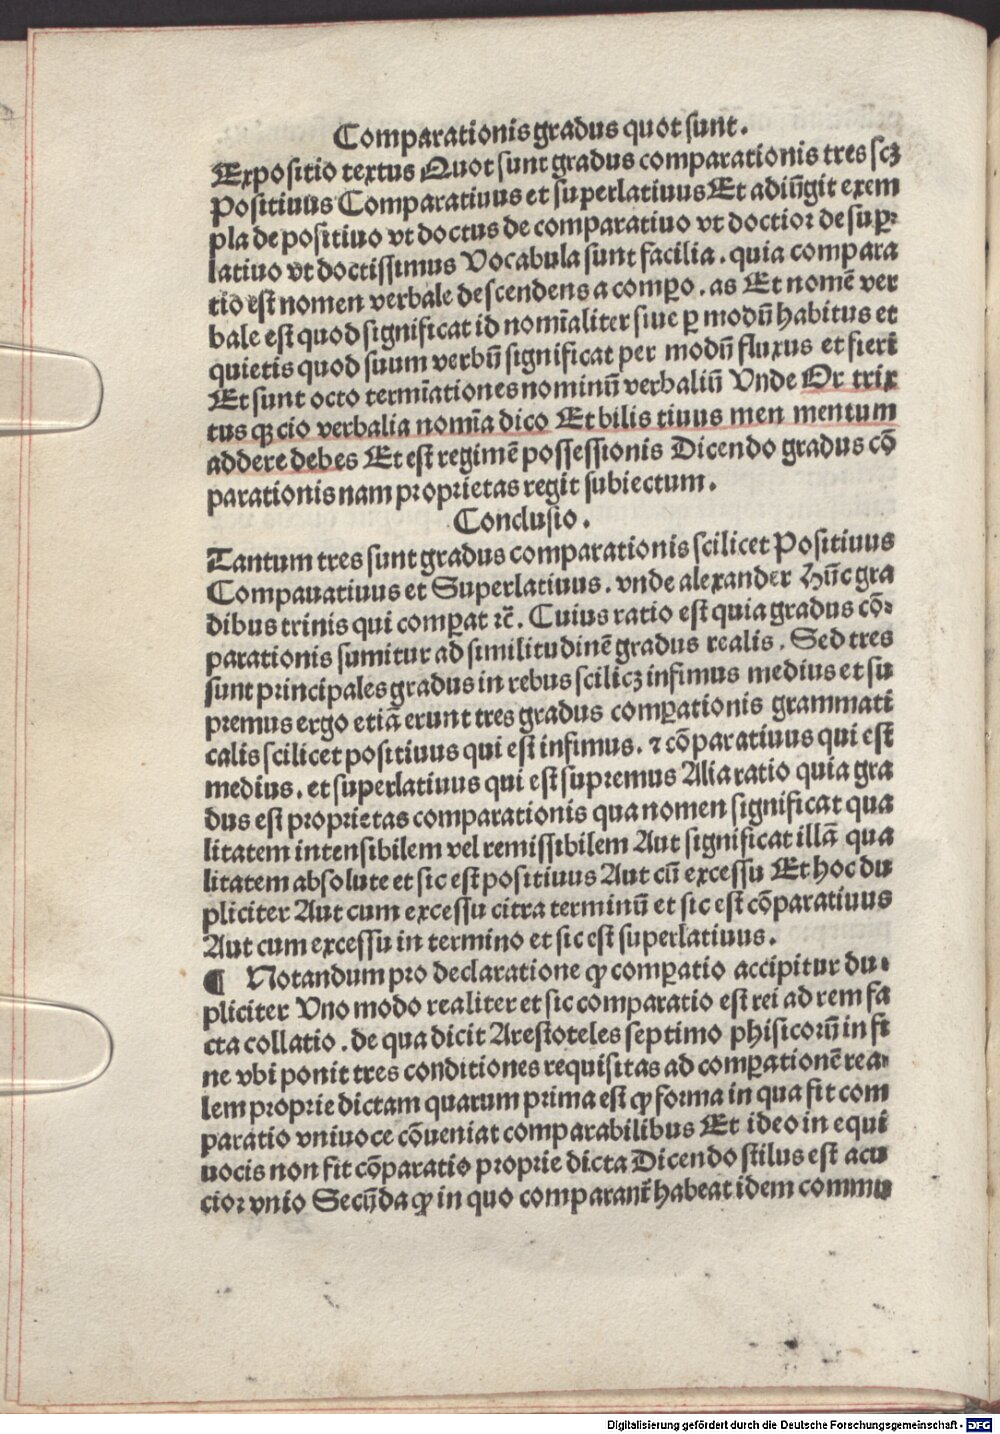 Comparationis gradus quot sunt.
Expositio textus Quot sunt gradus comparationis tres scꝫ
Positiuus Comparatiuus et superlatiuus Et adiūgit exem
pla de positiuo vt doctus de comparatiuo vt doctior de suꝑ-
latiuo vt doctissimus Vocabula sunt facilia. quia compara
tio est nomen verbale descendens a comꝑo. as Et nomē ver
bale est quod significat id nomīaliter siue ꝑ modū habitus et
quietis quod suum verbū significat per modū fluxus et fieri
Et sunt octo termīationes nominū verbaliū Vnde Or trix
tus qꝫ cio verbalia nomīa dico Et bilis tiuus men mentum
addere debes Et est regimē possessionis Dicendo gradus cō
parationis nam proprietas regit subiectum.
Conclusio.
Tantum tres sunt gradus comparationis scilicet Positiuus
Compauatiuus et Superlatiuus. vnde alexander Hūc gra
dibus trinis qui comꝑat ⁊c̄. Cuius ratio est quia gradus cō-
parationis sumitur ad similitudinē gradus realis. Sed tres
sunt principales gradus in rebus scilicꝫ infimus medius et su
premus ergo etiā erunt tres gradus comꝑationis grammati
calis scilicet positiuus qui est infimus. ⁊ cōparatiuus qui est
medius. et superlatiuus qui est supremus Alia ratio quia gra
dus est proprietas comparationis qua nomen significat qua
litatem intensibilem vel remissibilem Aut significat illā qua
litatem absolute et sic est positiuus Aut cū excessu Et hoc du
pliciter Aut cum excessu citra terminū et sic est cōparatiuus
Aut cum excessu in termino et sic est superlatiuus.
¶ Notandum pro declaratione ꝙ comꝑatio accipitur du-
pliciter Vno modo realiter et sic comparatio est rei ad rem fa
cta collatio. de qua dicit Arestoteles septimo phisicorū in fi
ne vbi ponit tres conditiones requisitas ad comꝑationē rea-
lem proprie dictam quarum prima est ꝙ forma in qua fit com
paratio vniuoce cōueniat comparabilibus Et ideo in equi
uocis non fit cōparatio proprie dicta Dicendo stilus est acu
cior vnio Secūda ꝙ in quo comparant̄ habeat idem commu
Digitalisierung gefördert durch die Deutsche Forschungsgemeinschaft - DFG